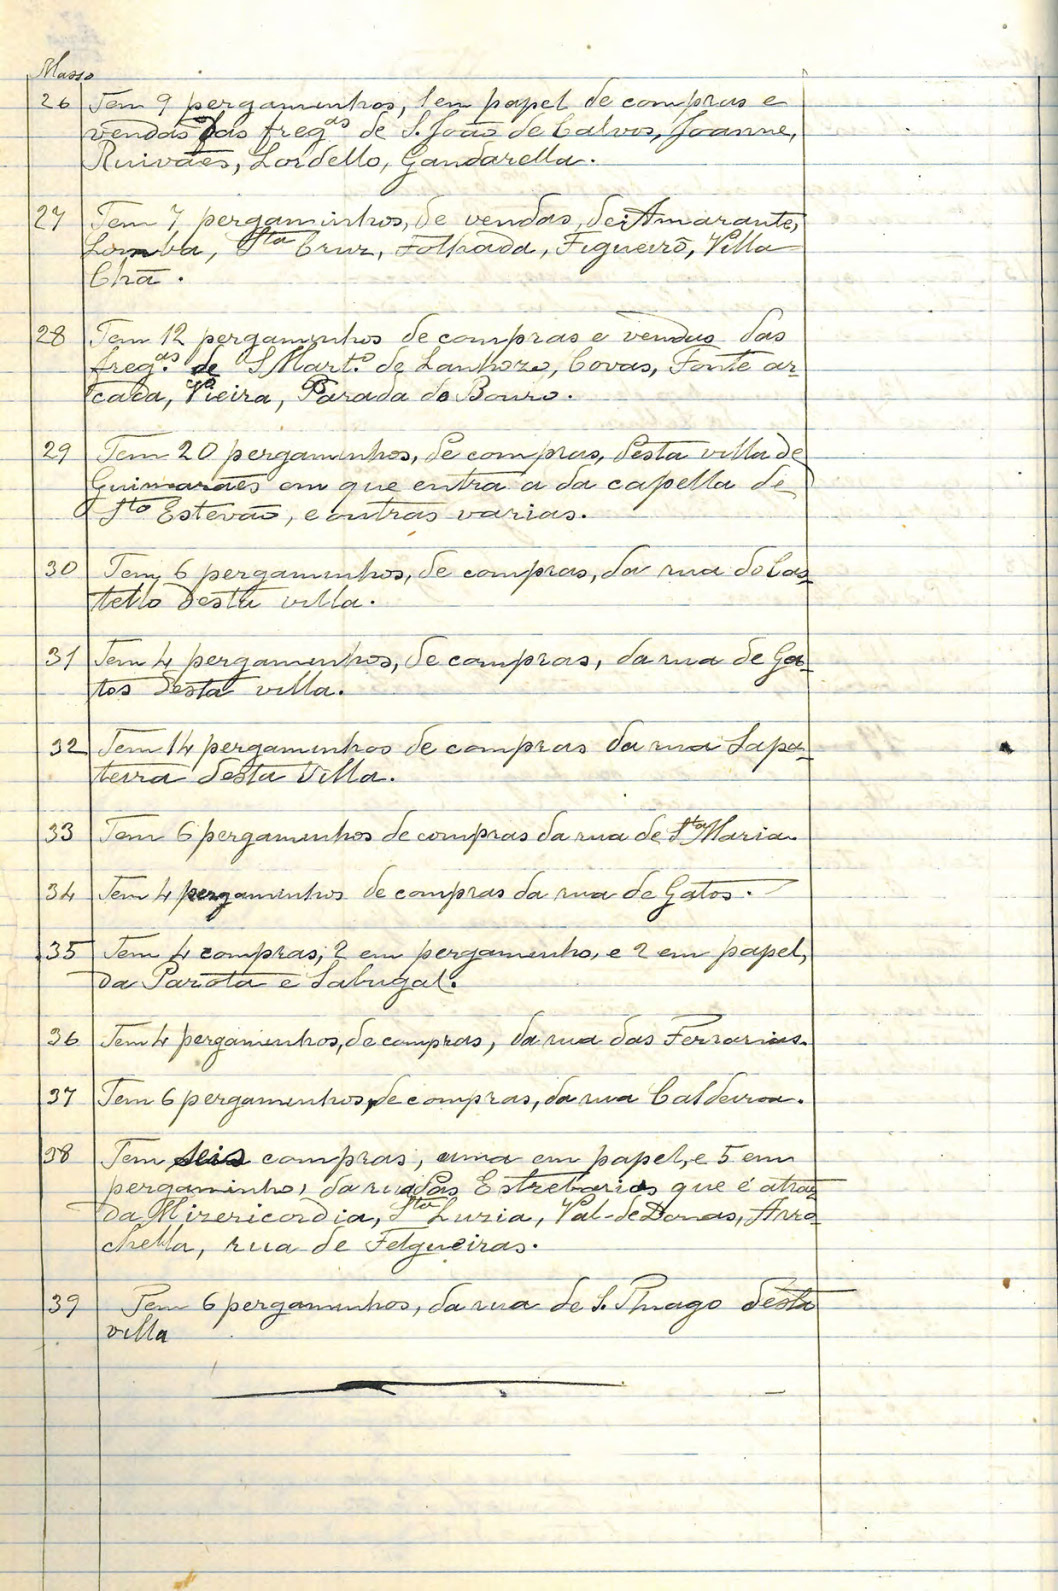 Masso
26 Tem 9 pergaminhos, 1 em papel de compras e
vendas das freg.as de S. João de Calvos, Joanne,
Ruivães, Lordello, Gandarella.
27 Tem 7, pergaminhos, de vendas, de Amarante,
Lomba, Sta Cruz, Folhada, Figueiró, Villa
Chã.
28 Tem 12 pergaminhos de compras e vendas das
freg.as de S Mart.o de Lanhozo, Covas, Fonte ar-
cada, Vieira, Parada do Bouro.
29 Tem 20 pergaminhos, de compras, desta villa de
Guimarães em que entra a da capella de
Sto Estevão, e outras varias.
30 Tem 6 pergaminhos, de compras, da rua do Cas-
tello desta villa.
31 Tem 4 pergaminhos, de compras, da rua de Ga-
tos desta villa.
32 Tem 14 pergaminhos de compras da rua Sapa-
teira desta Villa.
33 Tem 6 pergaminhos de compras da rua de Sta Maria.
34 Tem 4 pergaminhos de compras da rua de Gatos.
35 Tem 4 compras, 2 em pergaminho, e 2 em papel,
da Parota e Sabugal.
36 Tem 4 pergaminhos, de compras, da rua das Ferrarias.
37 Tem 6 pergaminhos, de compras, da rua Caldeiroa.
38 Tem seis compras, uma em papel, e 5 em
pergaminho, da rua das Estrebarias que é atraz
da Mizericordia, Sta Luzia, Val-de Donas, Arro-
chella, rua de Felgueiras.
39 Tem 6 pergaminhos, da rua de S. Thiago desta
villa